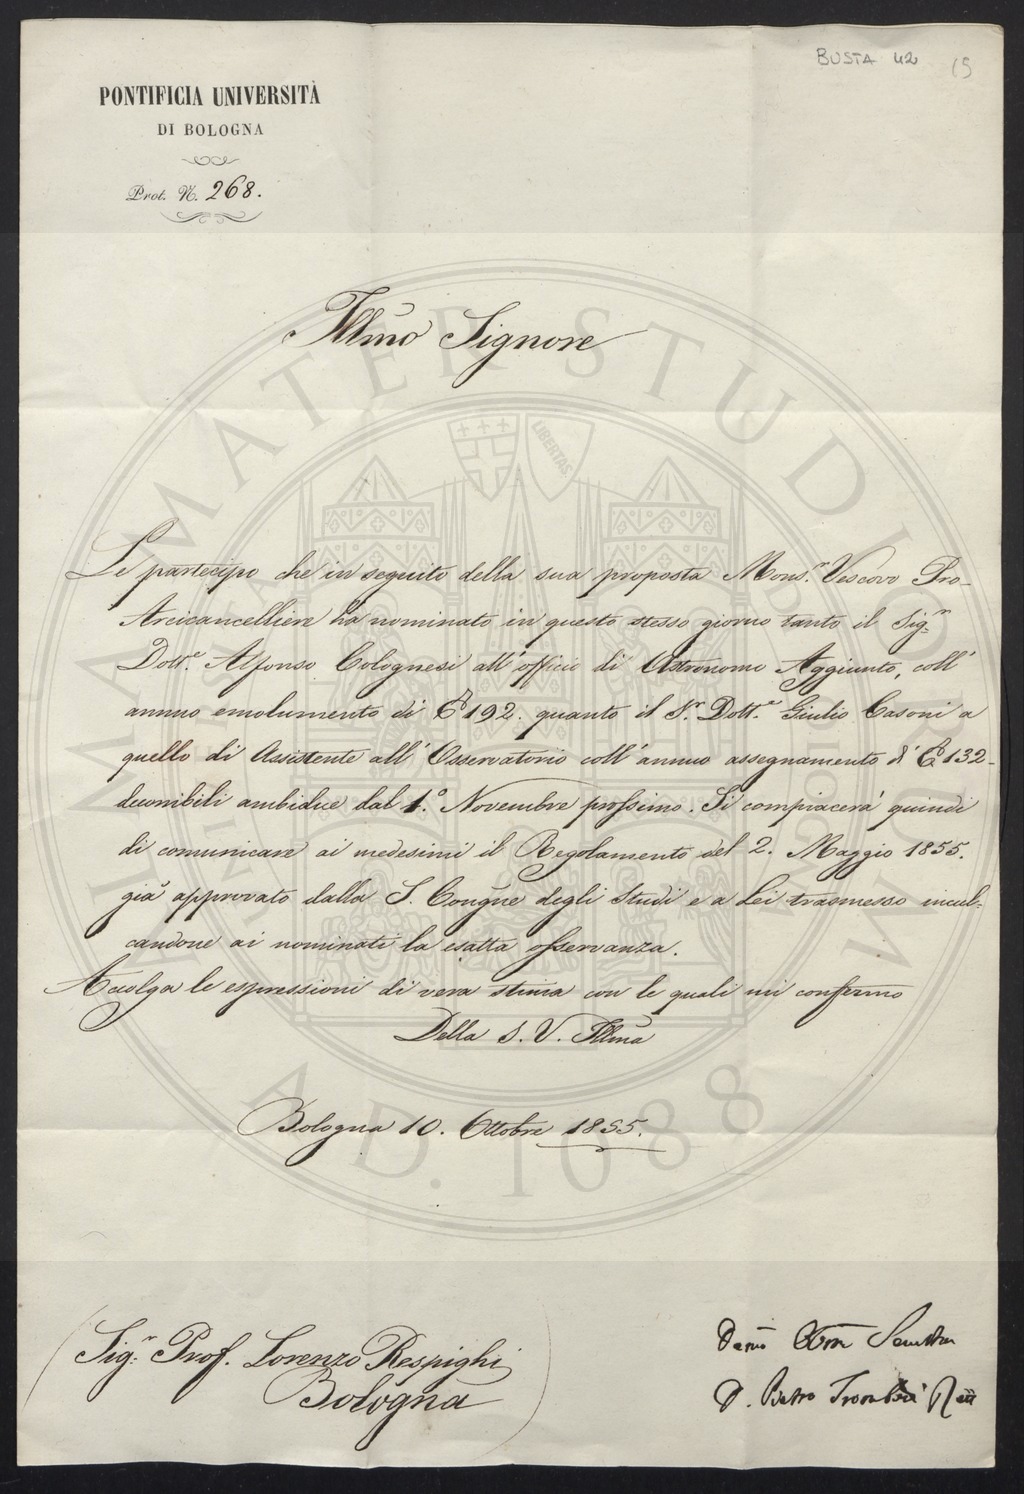 BUSTA 42
15
PONTIFICIA UNIVERSITÀ
DI BOLOGNA
Prot. N. 268.
Illmo Signore
Le partecipo che in seguito della sua proposta Mons.r Vescovo Pro-
Arcicancelliere ha nominato in questo stesso giorno tanto il Sig.r
Dott.e Alfonso Colognesi all'officio di Astronomo Aggiunto, coll'
annuo emolumento di 192. quanto il S.r Dott.e Giulio Casoni a
quello di Assistente all'Osservatorio coll'annuo assegnamento di 132-
decorribili ambidue dal 1.o Novembre prossimo. Si compiacerà quindi
di comunicare ai medesimi il Regolamento del 2. Maggio 1855.
già approvato dalla S. Congne degli Studi e a Lei trasmesso incul-
candone ai nominati la esatta osservanza.
Accolga le espressioni di vera stima con le quali mi confermo
Della S. V. Illma
Bologna 10. Ottobre 1855.
Sig.r Prof. Lorenzo Respighi
Bologna
D. Pietro Trombetti
ALMA MATER STUDIORUM
A.D. 1088
LIBERTAS